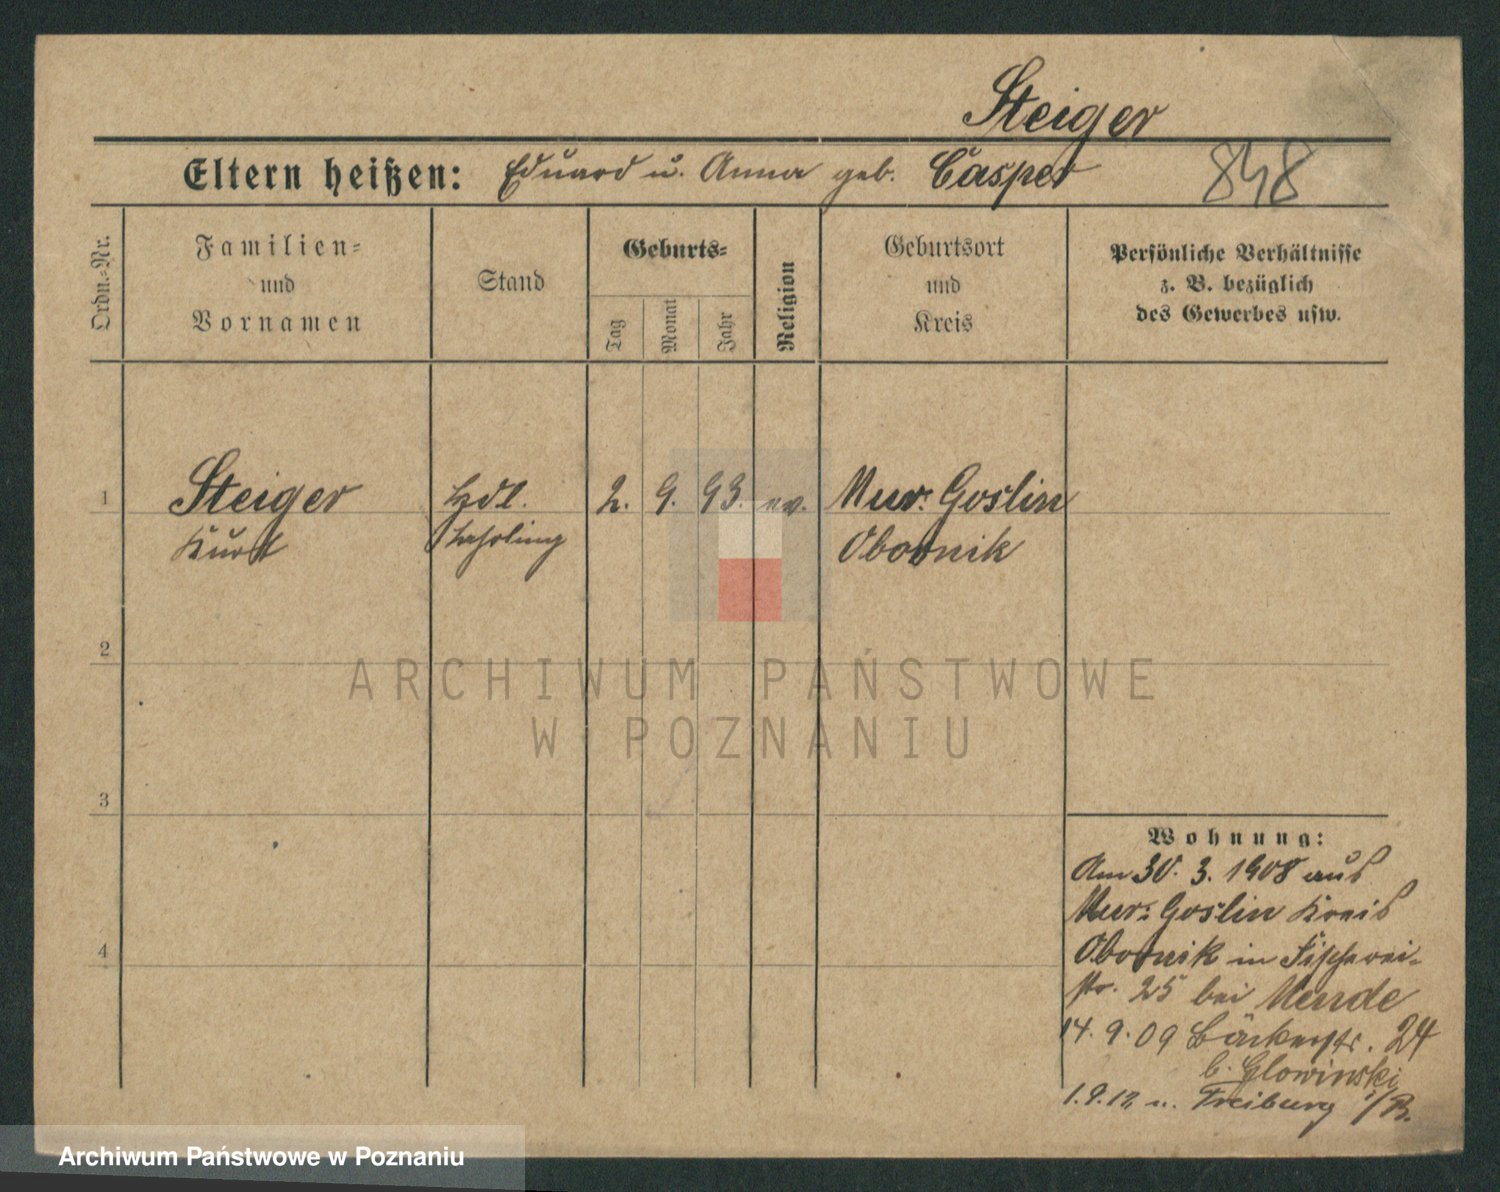 Steiger
Eltern heißen: Eduard u. Anna geb. Casper 848
Ordn.-Nr.
Familien-
und
Vornamen
Stand
Geburts-
Tag
Monat
Jahr
Religion
Geburtsort
und
Kreis
Persönliche Verhältnisse
z. B. bezüglich
des Gewerbes usw.
1 Steiger Hdl. 2. 9. 93. ev. Mur. Goslin
Kurt Lehrling Obornik
2
ARCHIWUM PAŃSTWOWE
W POZNANIU
3
Wohnung:
Am 30. 3. 1908 aus
Mur. Goslin Kreis
4 Obornik in Fischerei-
str. 25 bei Mende
14. 9. 09 Bäckerstr. 24
b. Glowinski
1.9.12 n. Freiburg i/B.
Archiwum Państwowe w Poznaniu